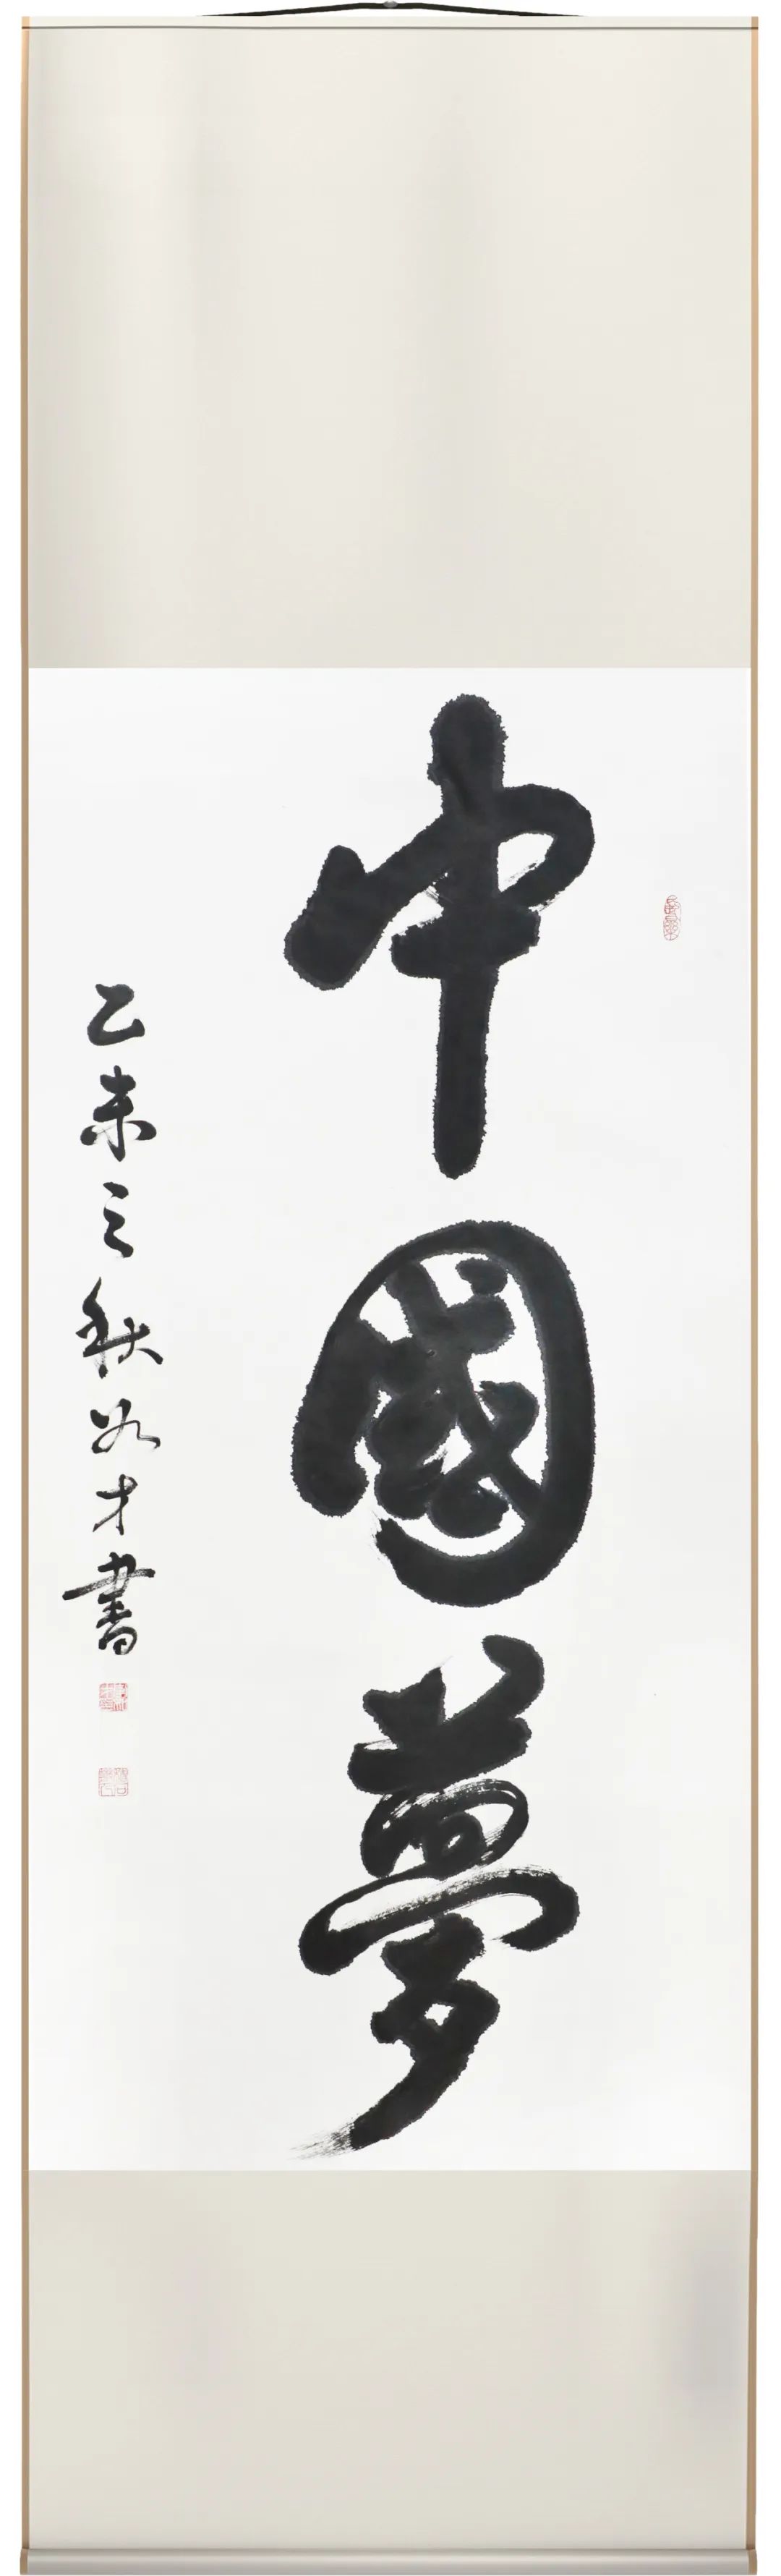 中國夢
乙未之秋
才書